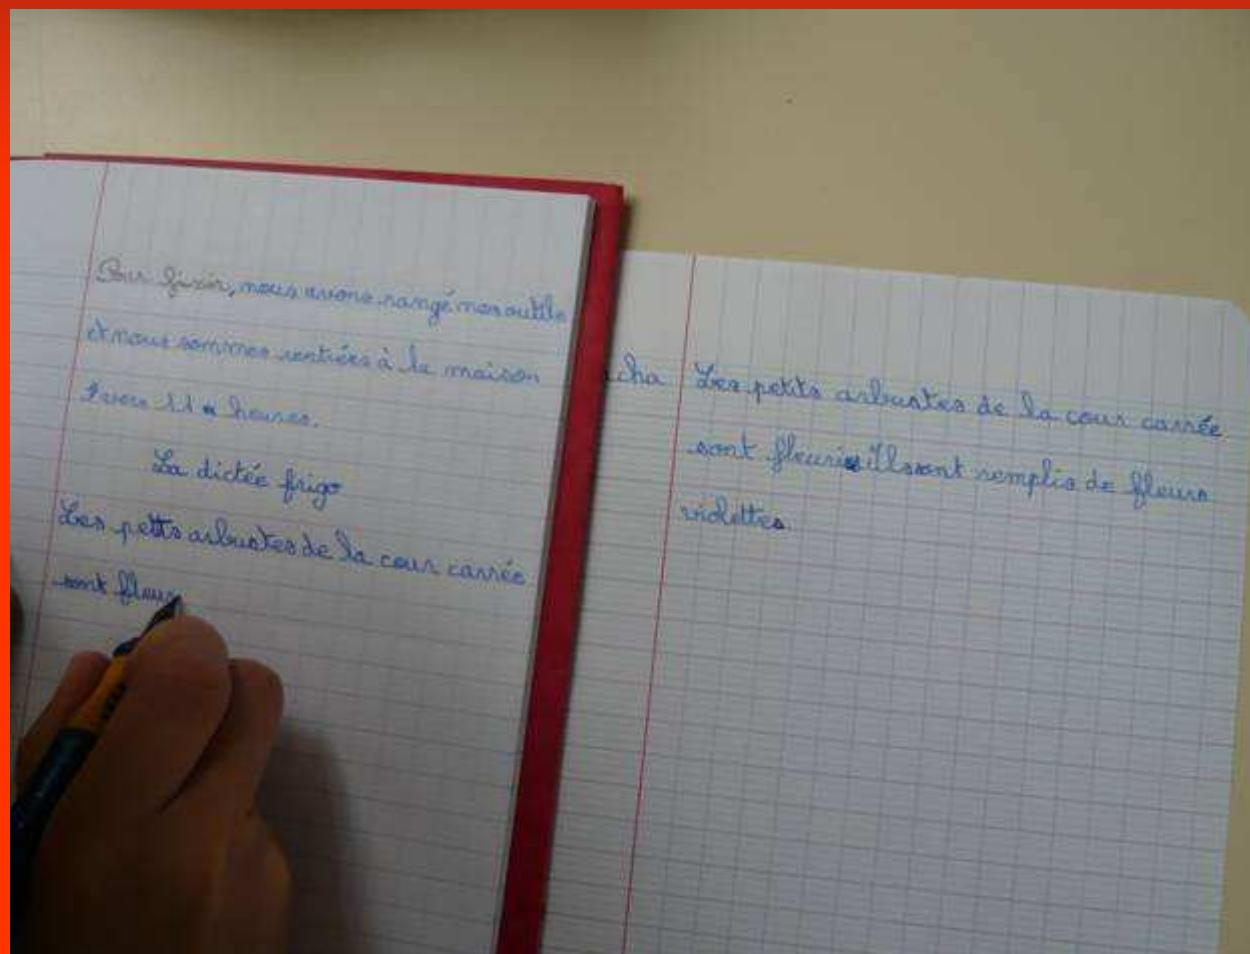 Pour finir, nous avons rangé nos outils
et nous sommes rentrées à la maison
heures.
La dictée frigo
Les petits arbustes de la cour carrée
sont fleur
cha
Les petits arbustes de la cour carrée
sont fleuris illsont remplis de fleurs
violettes.